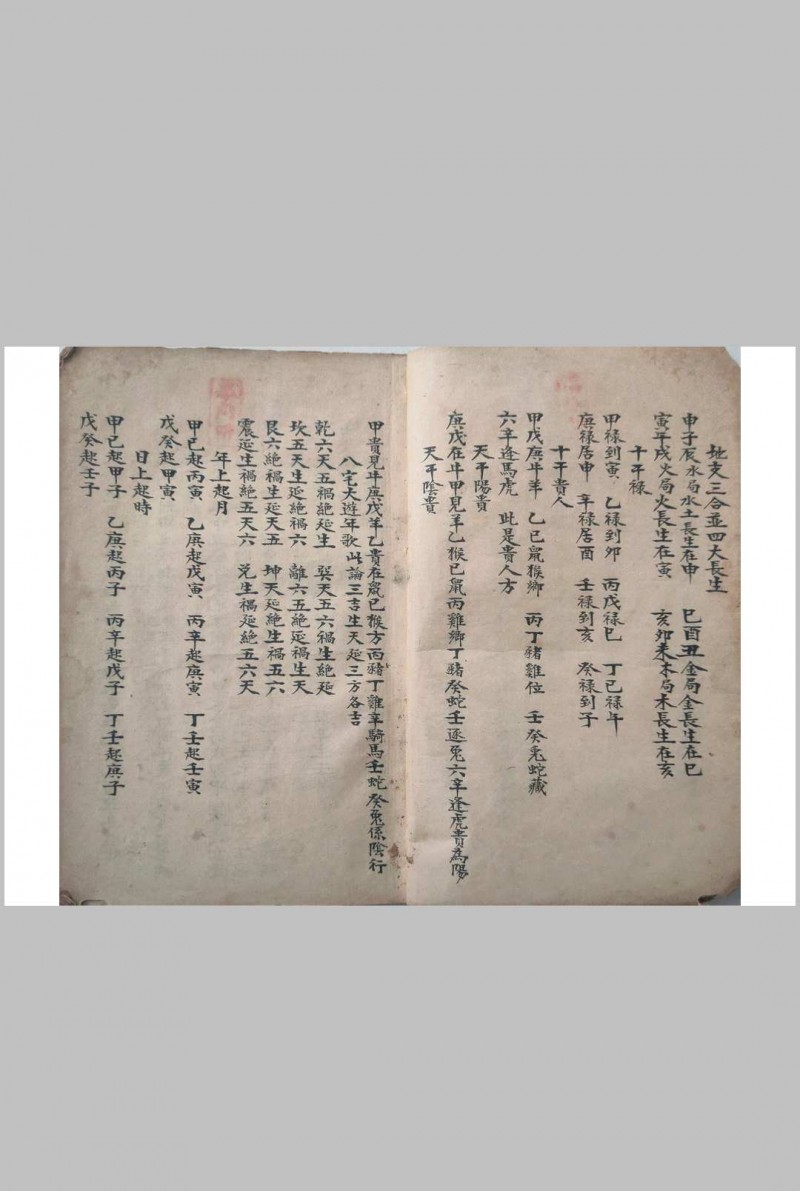 地支三合並四大長生
申子辰水局水土長生在申　巳酉丑金局金長生在巳
寅午戌火局火長生在寅　亥卯未木局木長生在亥
十干祿
甲祿到寅　乙祿到卯　丙戊祿巳　丁己祿午
庚祿居申　辛祿居酉　壬祿到亥　癸祿到子
十干貴人
甲戊庚牛羊　乙己鼠猴鄉　丙丁豬雞位　壬癸兎蛇藏
六辛逢馬虎　此是貴人方
天干陽貴
庚戊在牛甲見羊乙猴己鼠丙雞鄉丁豬癸蛇壬逐兎六辛逢虎貴為陽
天干陰貴
甲貴見牛庚戊羊乙貴在鼠己猴方丙豬丁雞辛騎馬壬蛇癸兎係陰行
八宅大遊年歌此論三吉生天延三方各吉
乾六天五禍絶延生　巽天五六禍生絶延
坎五天生延絶禍六　離六五絶延禍生天
艮六絶禍生延天五　坤天延絶生禍五六
震延生禍絶五天六　兌生禍延絶五六天
年上起月
甲己起丙寅　乙庚起戊寅　丙辛起庚寅　丁壬起壬寅
戊癸起甲寅
日上起時
甲己起甲子　乙庚起丙子　丙辛起戊子　丁壬起庚子
戊癸起壬子